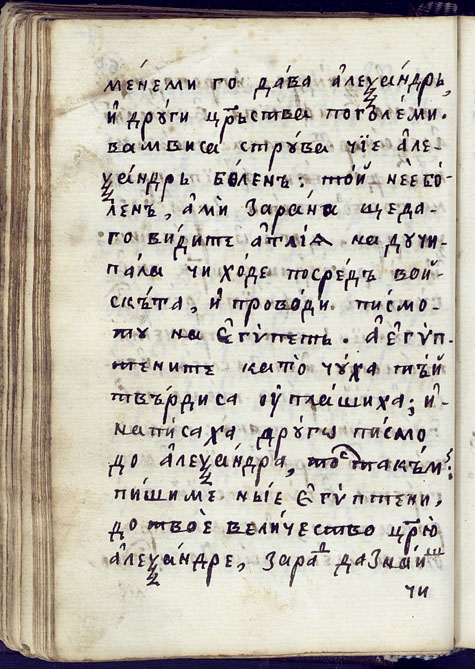 мене́ми го да́ва а҆леѯа́ндрь,
и҆ дрꙋ́ги црⷭ҇ьства поголе́ми.
вамвиса стрꙋ́ва чїе а҆ле-
ѯа́ндрь бо́ленъ: то́й нѐе бо́-
ленъ, а҆мѝ зара́на щеда-
го ви́дите а҆тлі́ѧ на дꙋчи-
па́ла чи хо́де посре́дъ вой-
ска́та, и҆ прово́ди писмо-
то на є҆гѵ́петь. а҆ є҆гѵ́п-
тените като̀ чꙋ́ха тъй
твъ́рдиса ᲂу҆пла́шиха; и҆
написаха дрꙋ́го писмо
до а҆леѯа́ндра, то́ⷭ҇ е҆ такъ́м:
пи́шиме ны́е є҆гѵ́птени,
до тво̀е вели́чество црⷭ҇ю
а҆леѯа́ндре, зараⷣ да зна́йⷲ
чи